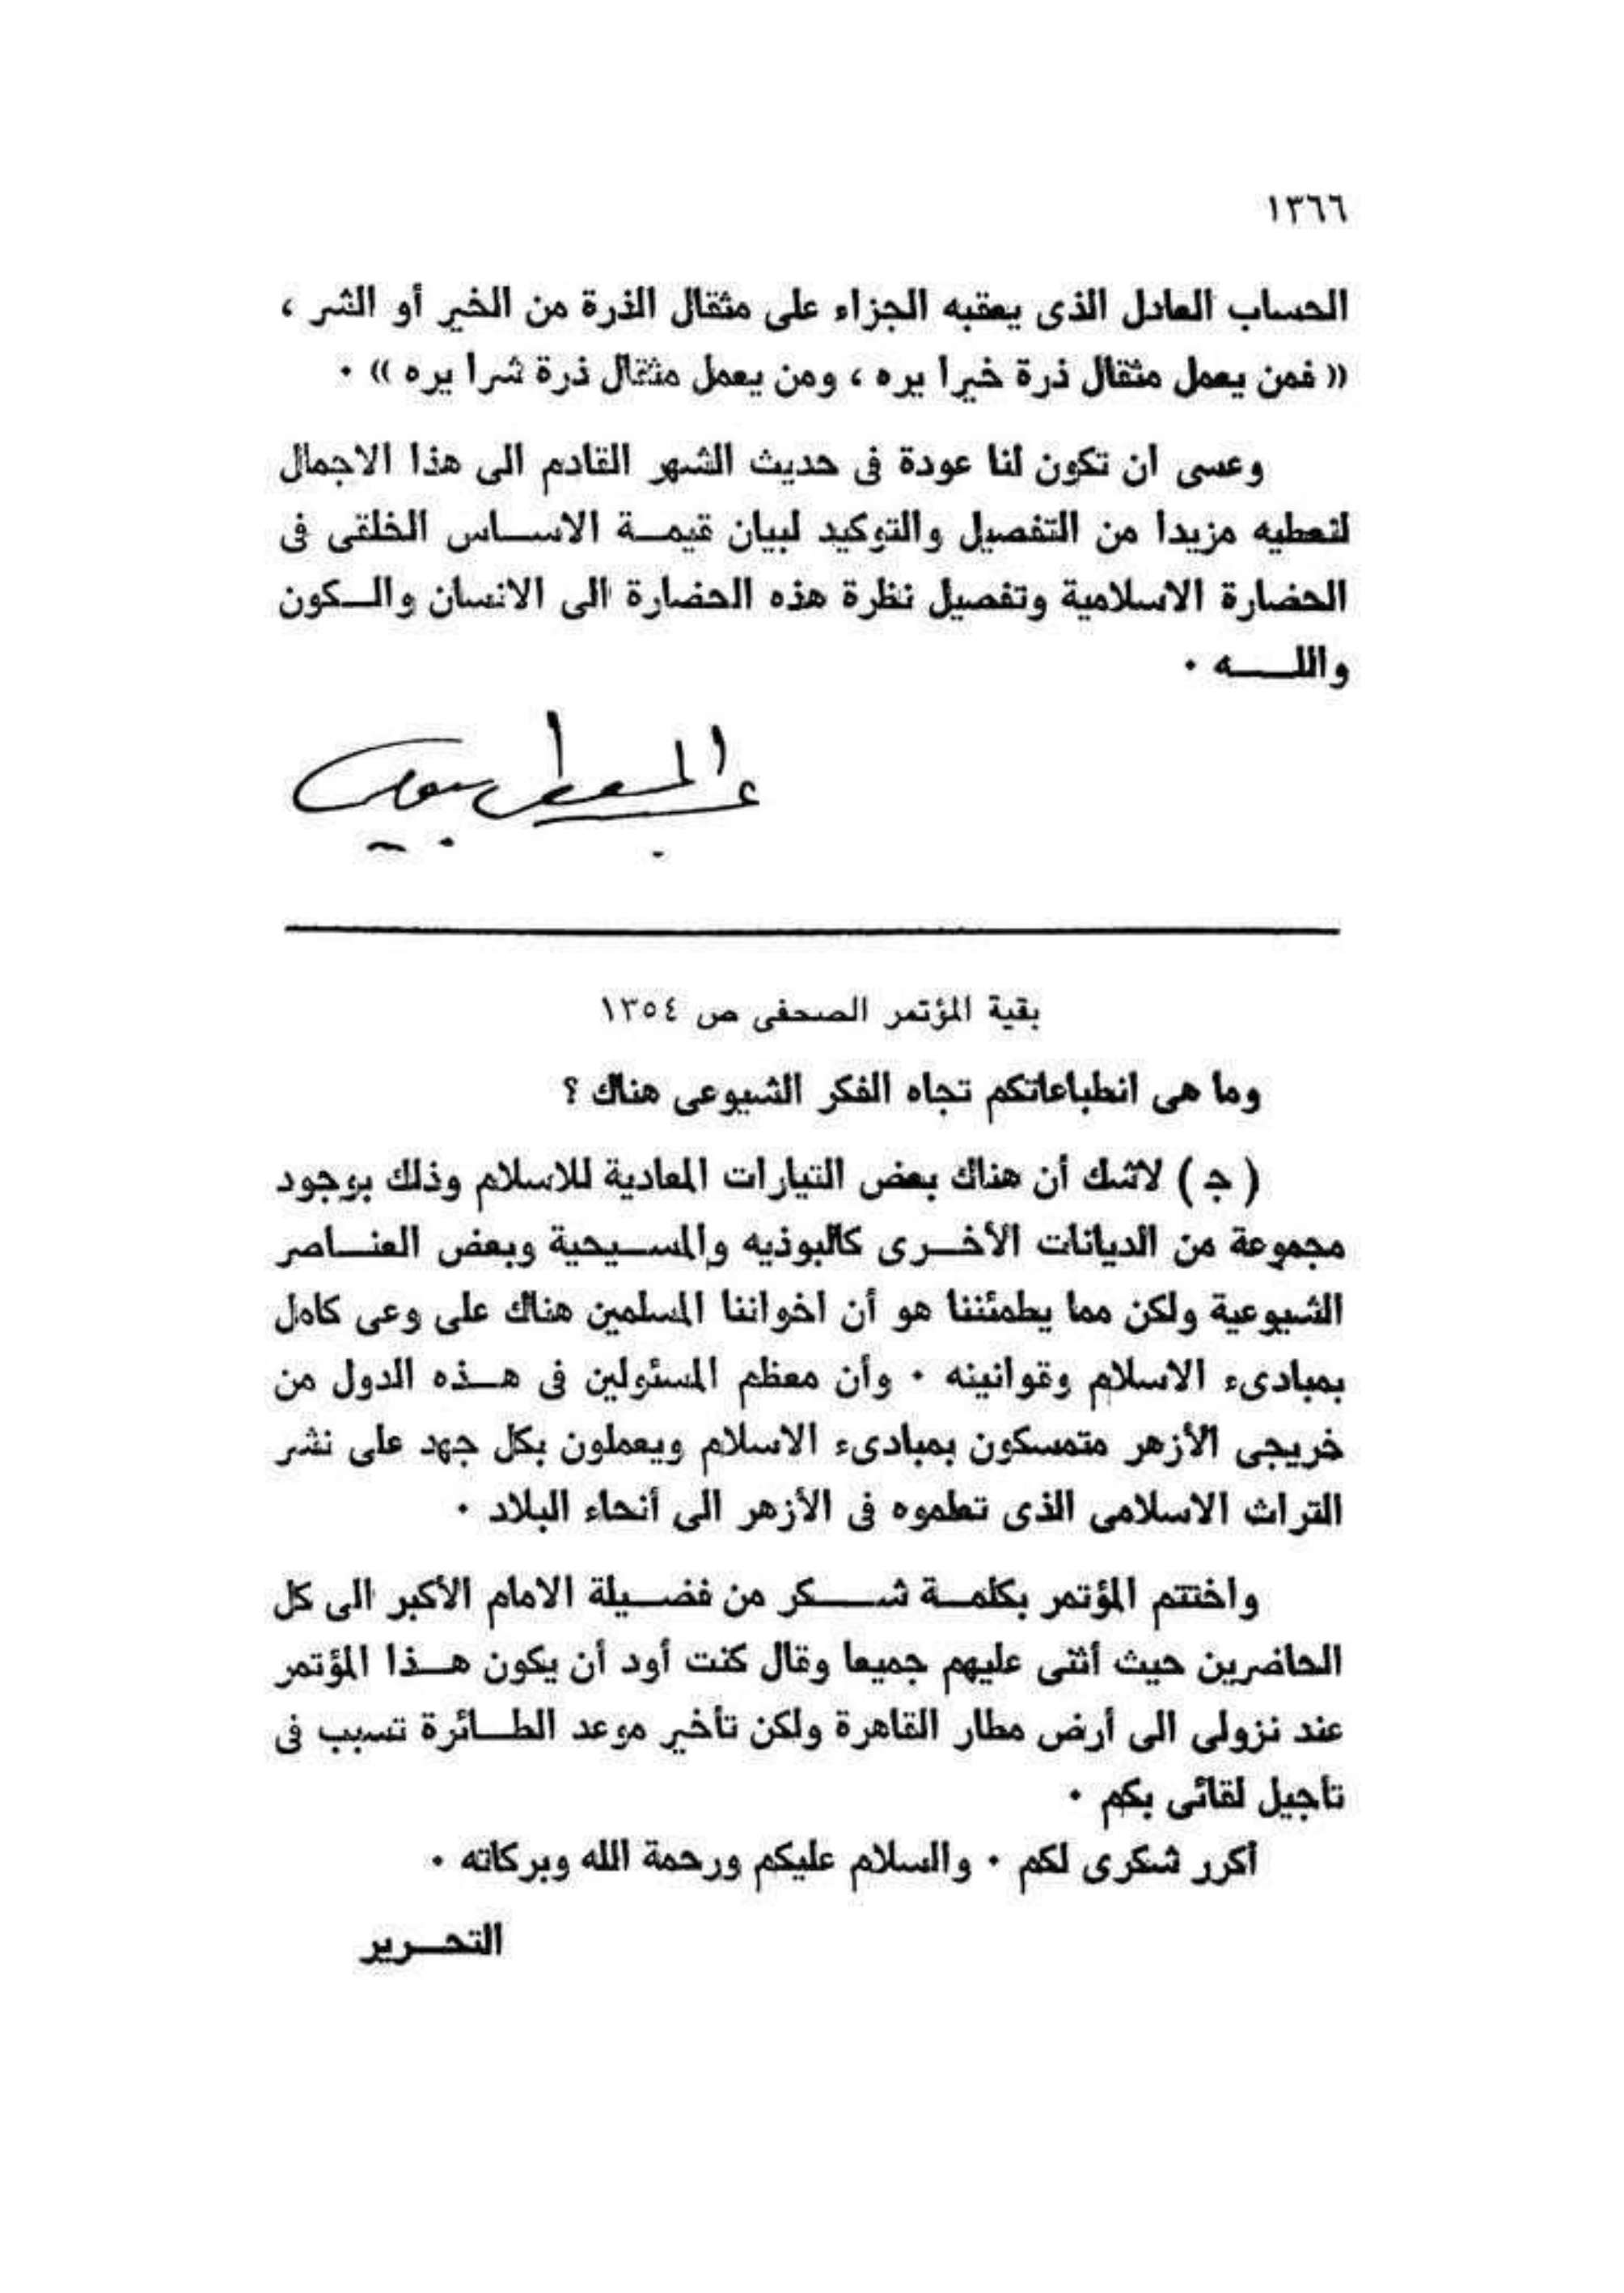 ١٣٦٦
الحساب العادل الذى يعقبه الجزاء على مثقال الذرة من الخير أو الشر ،
« فمن يعمل مثقال ذرة خيرا يره ، ومن يعمل مثقال ذرة شرا يره » ٠
وعسى ان تكون لنا عودة فى حديث الشهر القادم الى هذا الاجمال
لنعطيه مزيدا من التفصيل والتوكيد لبيان قيمة الاساس الخلقى فى
الحضارة الاسلامية وتفصيل نظرة هذه الحضارة الى الانسان والكون
والله ٠
عبد المعطى بيومى
بقية المؤتمر الصحفى ص ١٣٥٤
وما هى انطباعاتكم تجاه الفكر الشيوعى هناك ؟
( جـ ) لاشك أن هناك بعض التيارات المعادية للاسلام وذلك بوجود
مجموعة من الديانات الأخرى كالبوذيه والمسيحية وبعض العناصر
الشيوعية ولكن مما يطمئننا هو أن اخواننا المسلمين هناك على وعى كامل
بمبادىء الاسلام وقوانينه ٠ وأن معظم المسئولين فى هذه الدول من
خريجى الأزهر متمسكون بمبادىء الاسلام ويعملون بكل جهد على نشر
التراث الاسلامى الذى تعلموه فى الأزهر الى أنحاء البلاد ٠
واختتم المؤتمر بكلمة شكر من فضيلة الامام الأكبر الى كل
الحاضرين حيث أثنى عليهم جميعا وقال كنت أود أن يكون هذا المؤتمر
عند نزولى الى أرض مطار القاهرة ولكن تأخير موعد الطائرة تسبب فى
تأجيل لقائى بكم ٠
أكرر شكرى لكم ٠ والسلام عليكم ورحمة الله وبركاته ٠
التحرير